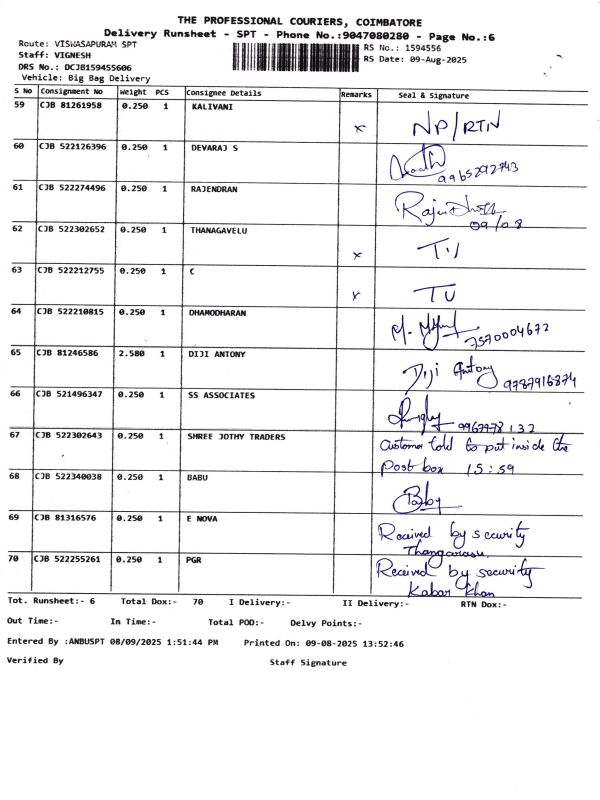 THE PROFESSIONAL COURIERS, COIMBATORE
Delivery Runsheet - SPT - Phone No.:9047080280 - Page No.:6
Route: VISWASAPURAM SPT
RS No.: 1594556
Staff: VIGNESH
RS Date: 09-Aug-2025
DRS No.: DCJB159455606
Vehicle: Big Bag Delivery
S No Consignment No Weight PCS Consignee Details Remarks Seal & Signature
59 CJB 81261958 0.250 1 KALIVANI x NP/RTN
60 CJB 522126396 0.250 1 DEVARAJ S 9965292743
61 CJB 522274496 0.250 1 RAJENDRAN 09/08
62 CJB 522302652 0.250 1 THANAGAVELU x
63 CJB 522212755 0.250 1 C x TU
64 CJB 522210815 0.250 1 DHAMODHARAN 7570004672
65 CJB 81246586 2.580 1 DIJI ANTONY Diji Antony 9787916874
66 CJB 521496347 0.250 1 SS ASSOCIATES
67 CJB 522302643 0.250 1 SHREE JOTHY TRADERS Customer told to put inside the
Post box 15:59
68 CJB 522340038 0.250 1 BABU
69 CJB 81316576 0.250 1 E NOVA Received by security
70 CJB 522255261 0.250 1 PGR Received by security
Kabar Khan
Tot. Runsheet:- 6 Total Dox:- 70 I Delivery:- II Delivery:- RTN Dox:-
Out Time:- In Time:- Total POD:- Delvy Points:-
Entered By :ANBUSPT 08/09/2025 1:51:44 PM Printed On: 09-08-2025 13:52:46
Verified By Staff Signature